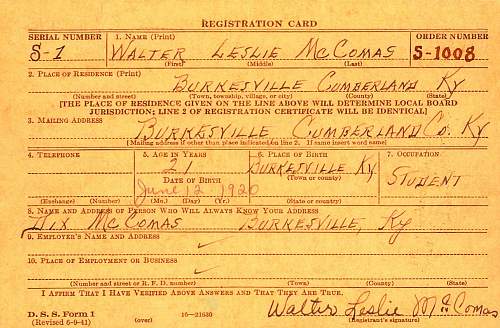 REGISTRATION CARD
SERIAL NUMBER 1. NAME (Print) ORDER NUMBER
S-1 WALTER LESLIE McCOMAS S-1008
(First) (Middle) (Last)
2. PLACE OF RESIDENCE (Print)
BURKESVILLE CUMBERLAND KY
(Number and street) (Town, township, village, or city) (County) (State)
[THE PLACE OF RESIDENCE GIVEN ON THE LINE ABOVE WILL DETERMINE LOCAL BOARD
JURISDICTION; LINE 2 OF REGISTRATION CERTIFICATE WILL BE IDENTICAL]
3. MAILING ADDRESS
BURKESVILLE CUMBERLAND CO. KY
[Mailing address if other than place indicated on line 2. If same insert word same]
4. TELEPHONE 5. AGE IN YEARS 6. PLACE OF BIRTH 7. OCCUPATION
21 BURKESVILLE KY.
DATE OF BIRTH (Town or county) STUDENT
June 12. 1920
(Exchange) (Number) (Mo.) (Day) (Yr.) (State or country)
8. NAME AND ADDRESS OF PERSON WHO WILL ALWAYS KNOW YOUR ADDRESS
DIX McCOMAS BURKESVILLE, KY
9. EMPLOYER'S NAME AND ADDRESS
10. PLACE OF EMPLOYMENT OR BUSINESS
(Number and street or R. F. D. number) (Town) (County) (State)
I AFFIRM THAT I HAVE VERIFIED ABOVE ANSWERS AND THAT THEY ARE TRUE.
Walter Leslie McComas
D. S. S. Form 1 (Registrant's signature)
(Revised 6-9-41) (over) 16—21630